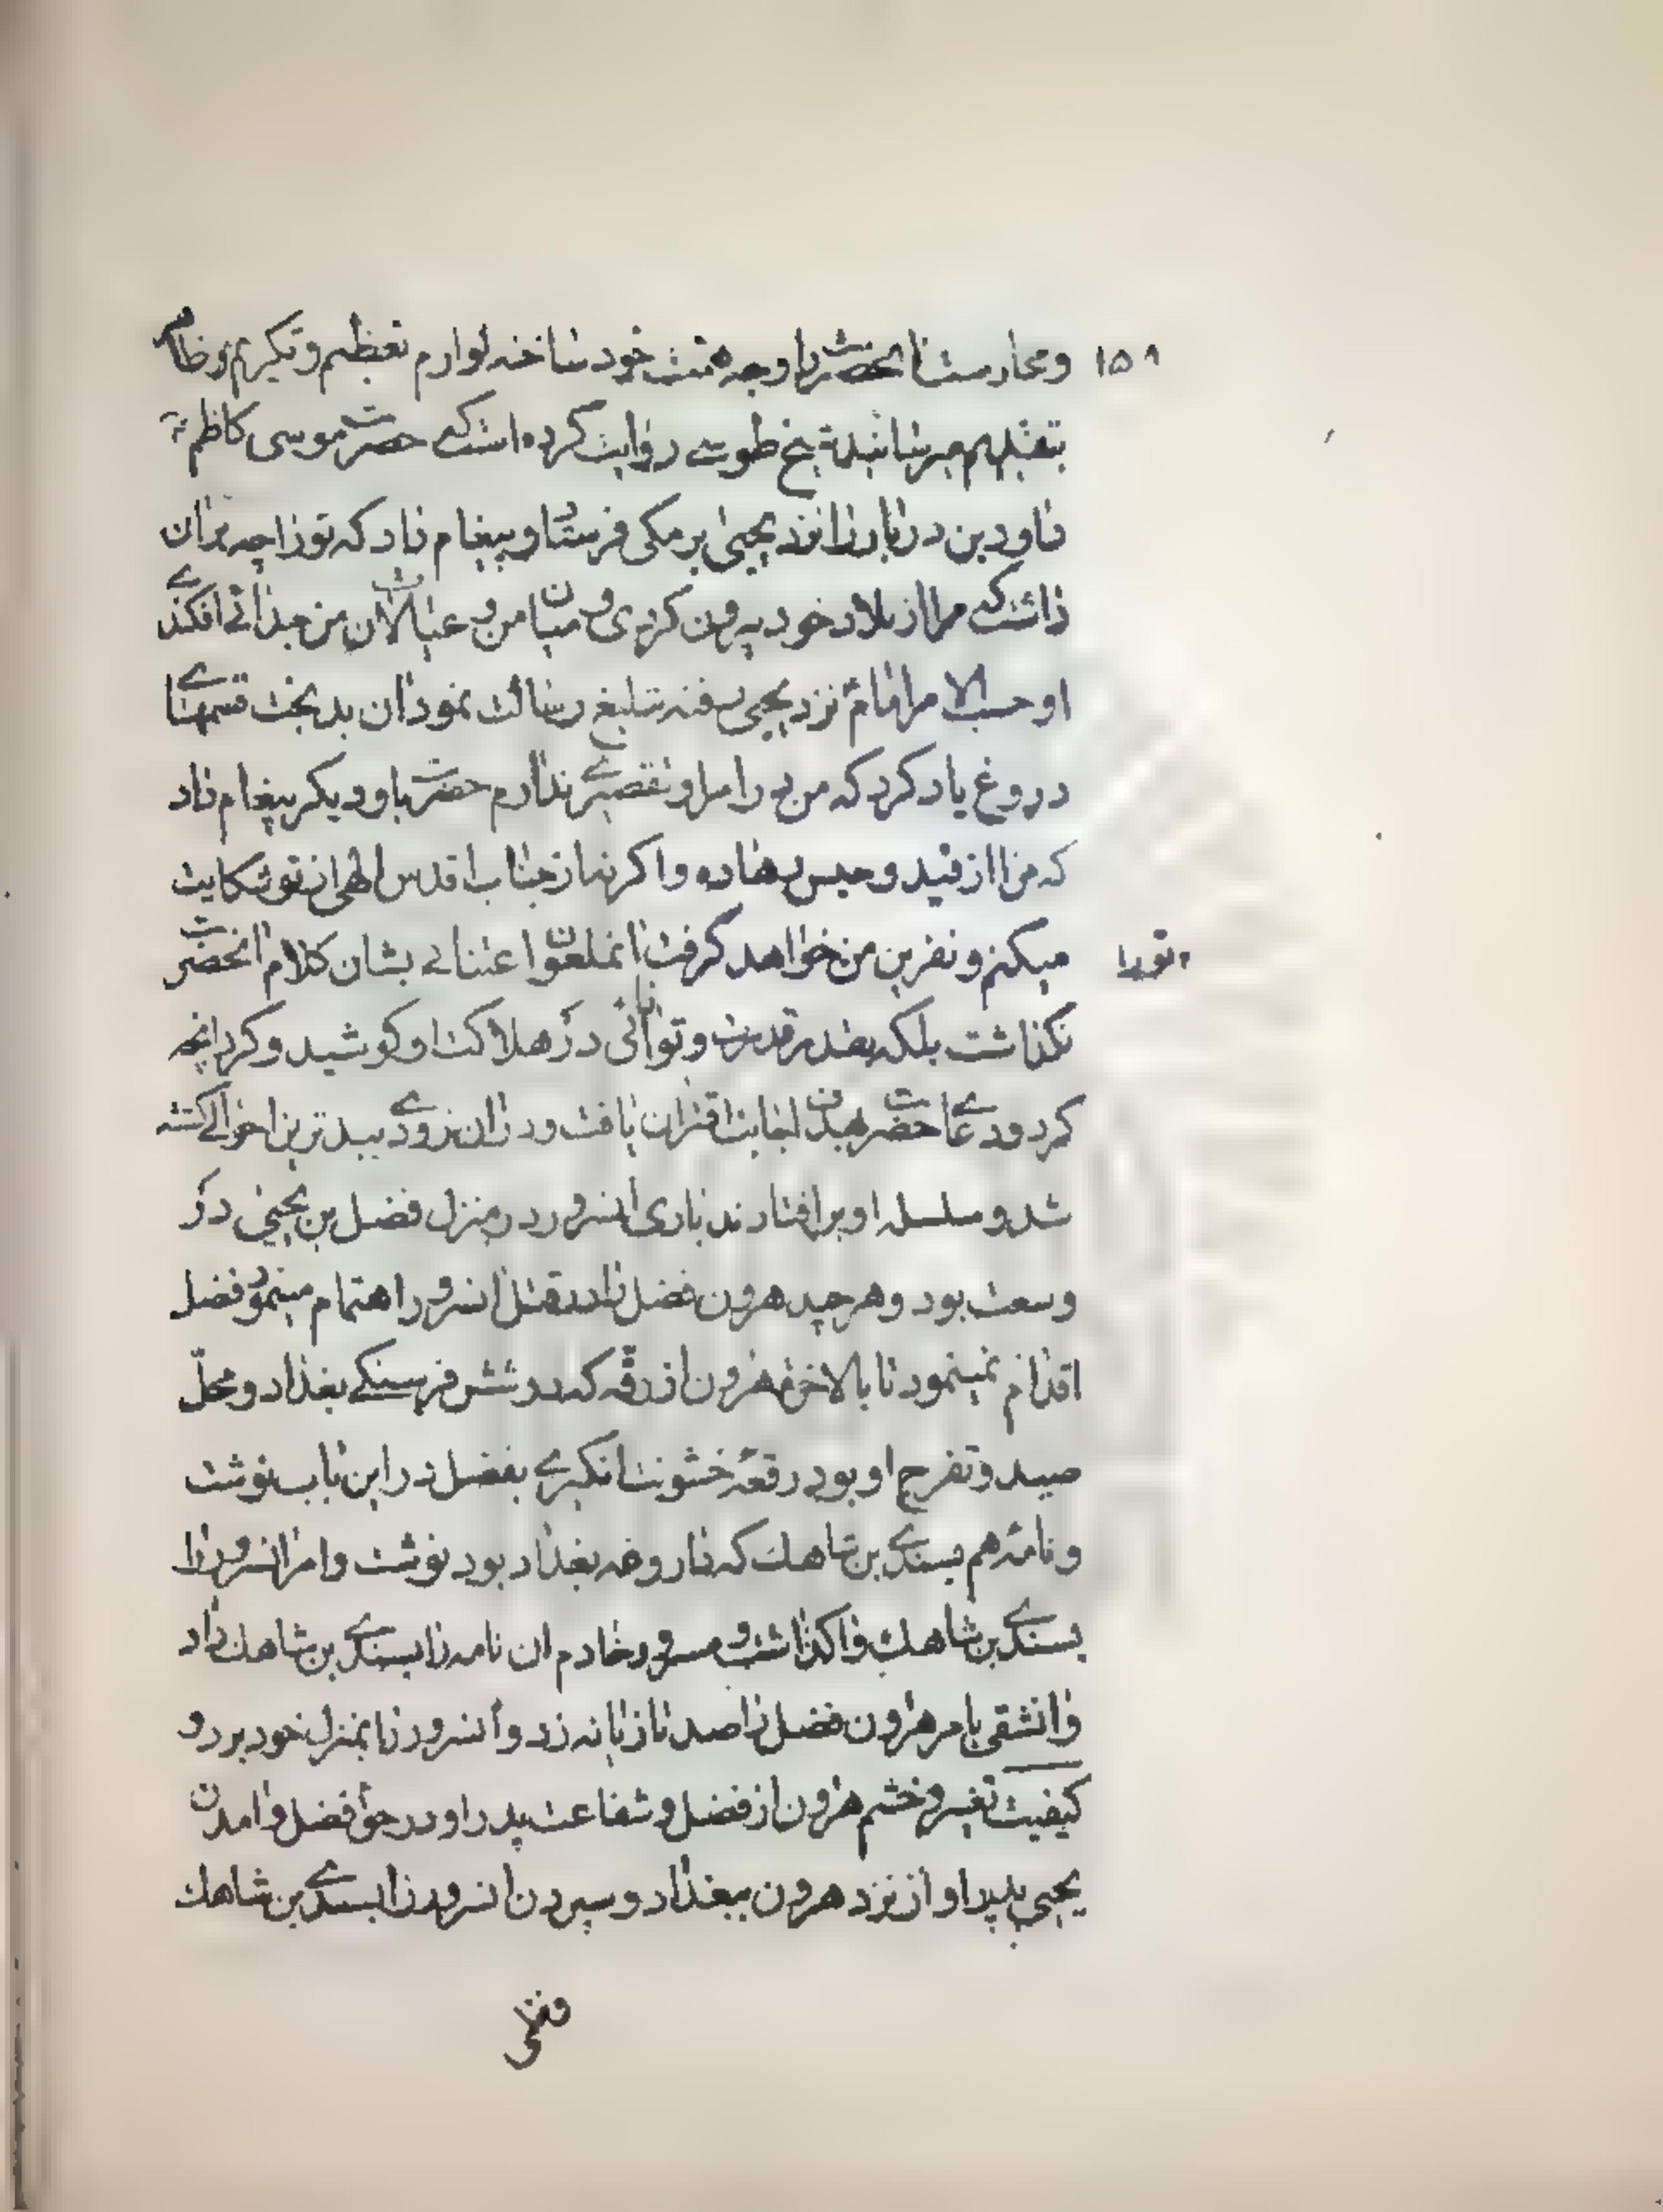 ۱۵۸
و محارست انحضرت را وجه همت خود ساخته لوازم تعظیم و تکریم
بتقدیم میرسانید شیخ طوسے روایت کرده استکه حضرت موسی کاظم ع
داود بن دربار را نزد یحیی برمکی فرستاد و پیغام داد که تو را چه بران
داشت که مرا از بلاد خود بیرون کردی و میان من و عیالان من جدائے افکندے
او حسب الامر امام نزد یحیی رفته تبلیغ رسالت نمود ان بدبخت قسمهاے
دروغ یاد کرد که من در امر او تقصیرے ندارم حضرت باو دیکر پیغام داد
که مرا از قید و حبس رها ده و اکر نه از جناب اقدس الهی از تو شکایت
میکنم و نفرین من خواهد کرفت انملعون اعتنائے بشان کلام انحضرت
تو را
نکذاشت بلکه بقدر قدرت و توانائی در هلاکت او کوشید و کرد انچه
کرد و دعاے حضرت بهدف اجابت اقتران یافت و در ان نزودے ببدترین احوالے کشته
شد و سلسله او برافتادند باری انسرور در منزل فضل بن یحیی در
وسعت بود و هرچند هرون فضل را در قتل انسرور اهتمام مینمود فضل
اقدام نمینمود تا بالاخره هرون از رقه که در شش فرسنکے بغداد و محلّ
صید و تفرج او بود رقعۀ خشونت انکیزے بفضل در این باب نوشت
و نامۀ هم بسندے بن شاهک که داروغه بغداد بود نوشت و امر انسرور را
بسندے بن شاهک واکذاشت و مسرور خادم ان نامه را بسندے بن شاهک داد
و انشقی بامر هرون فضل را صد تازیانه زد و انسرور را بمنزل خود برد و
کیفیت تغیر و خشم هرون از فضل و شفاعت پدر او در حق فضل و امدن
یحیی پدر او از نزد هرون ببغداد و سپردن انسرور را بسندے بن شاهک